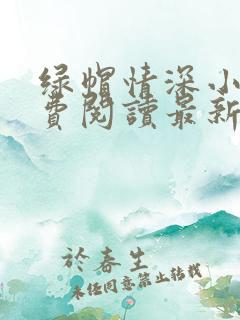 绿帽情深小
費閱讀最新
於春生
未经同意禁止转载